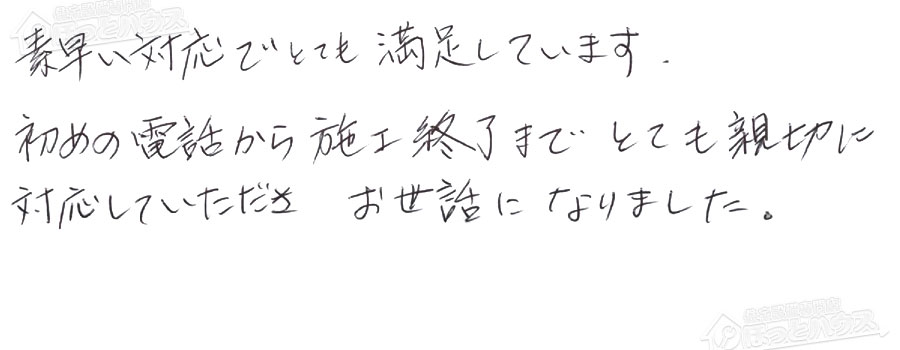 素早い対応でとても満足しています.
初めの電話から施工終了まで とても親切に
対応していただき お世話になりました。
ほっとハウス
ほっとハウス